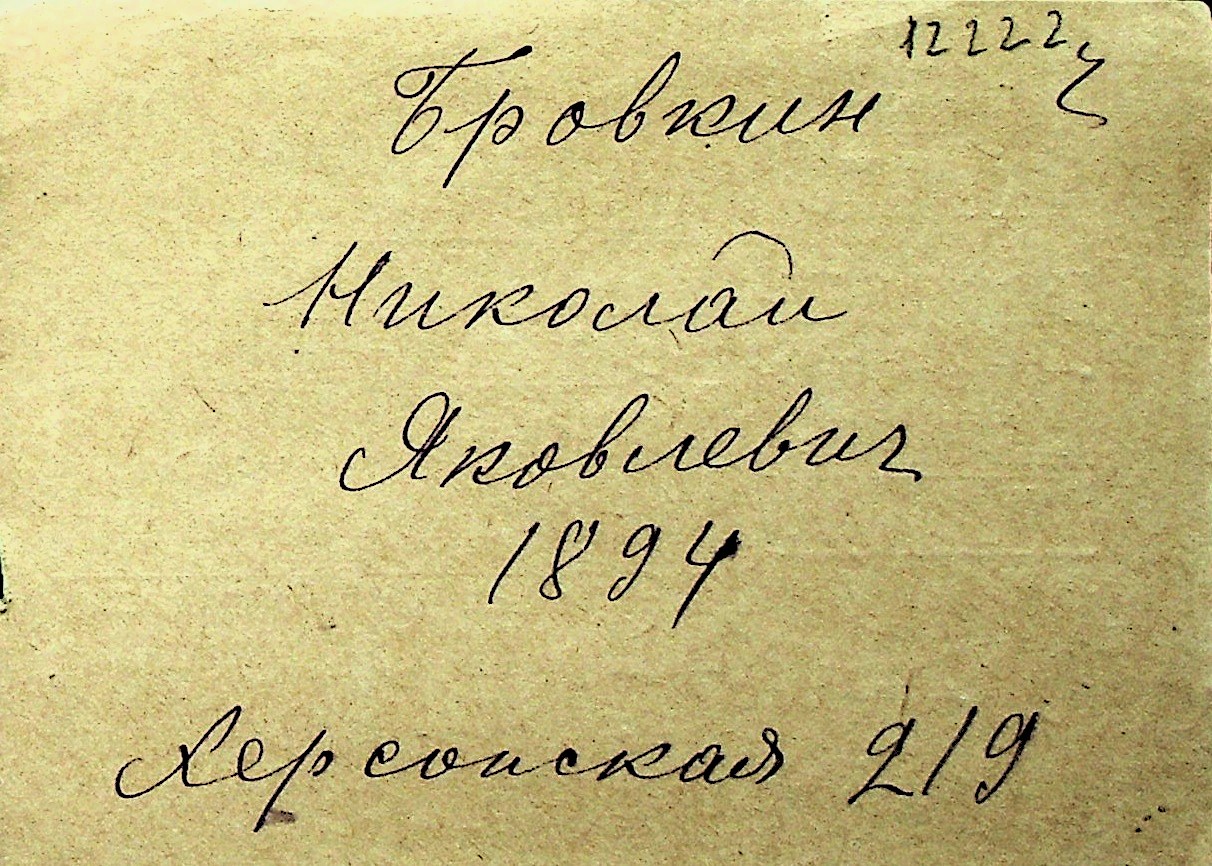 12222
Бровкин
Николай
Яковлевич
1894
Херсонская 219